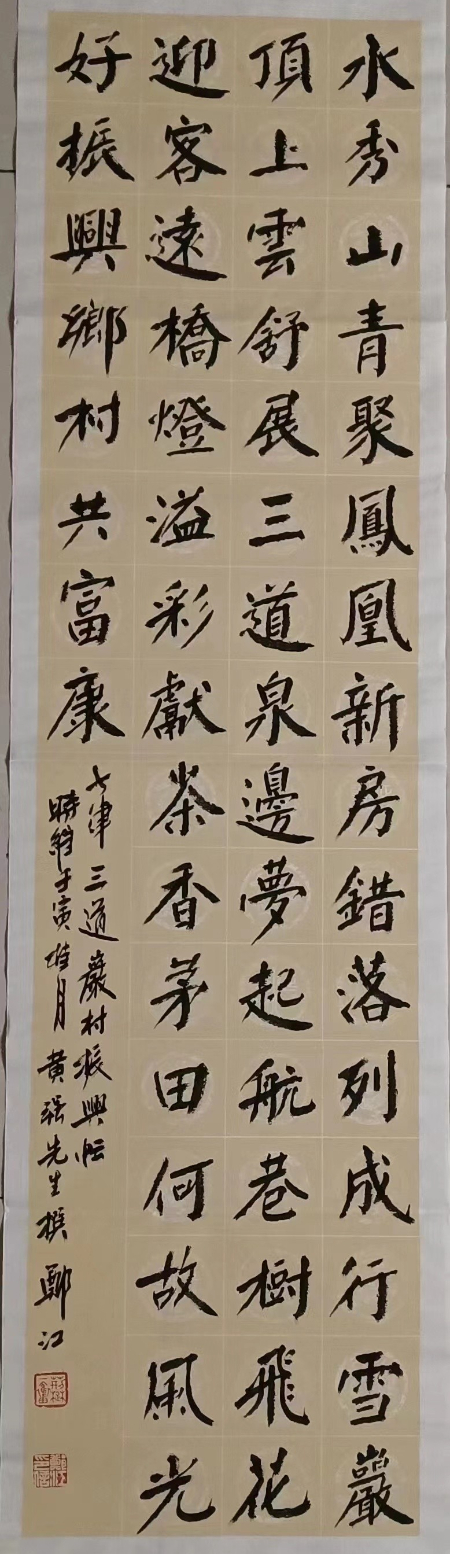 水秀山青聚鳳凰新房錯落列成行雪巖
頂上雲舒展三道泉邊夢起航巷樹飛花
迎客遠橋燈溢彩獻茶香茅田何故風光
好振興鄉村共富康
七律 三道巖村振興記
時維壬寅桂月 黄强先生撰 鄭江